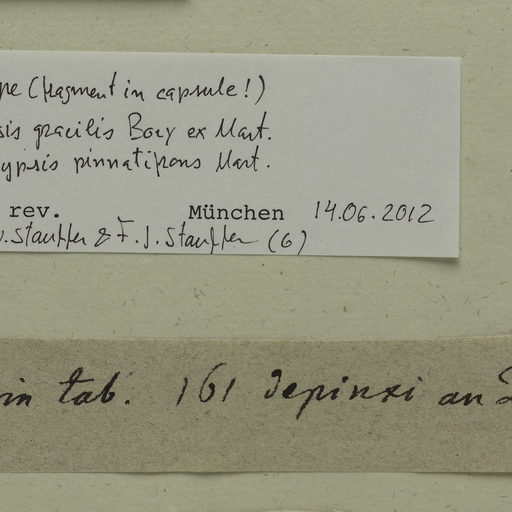 pe (fragment in capsule!)
sis gracilis Bory ex Mart.
ypsis pinnatifrons Mart.
rev. München 14.06.2012
w. Stauffer & F. J. Stauffer (G)
in tab. 161 depinxi an